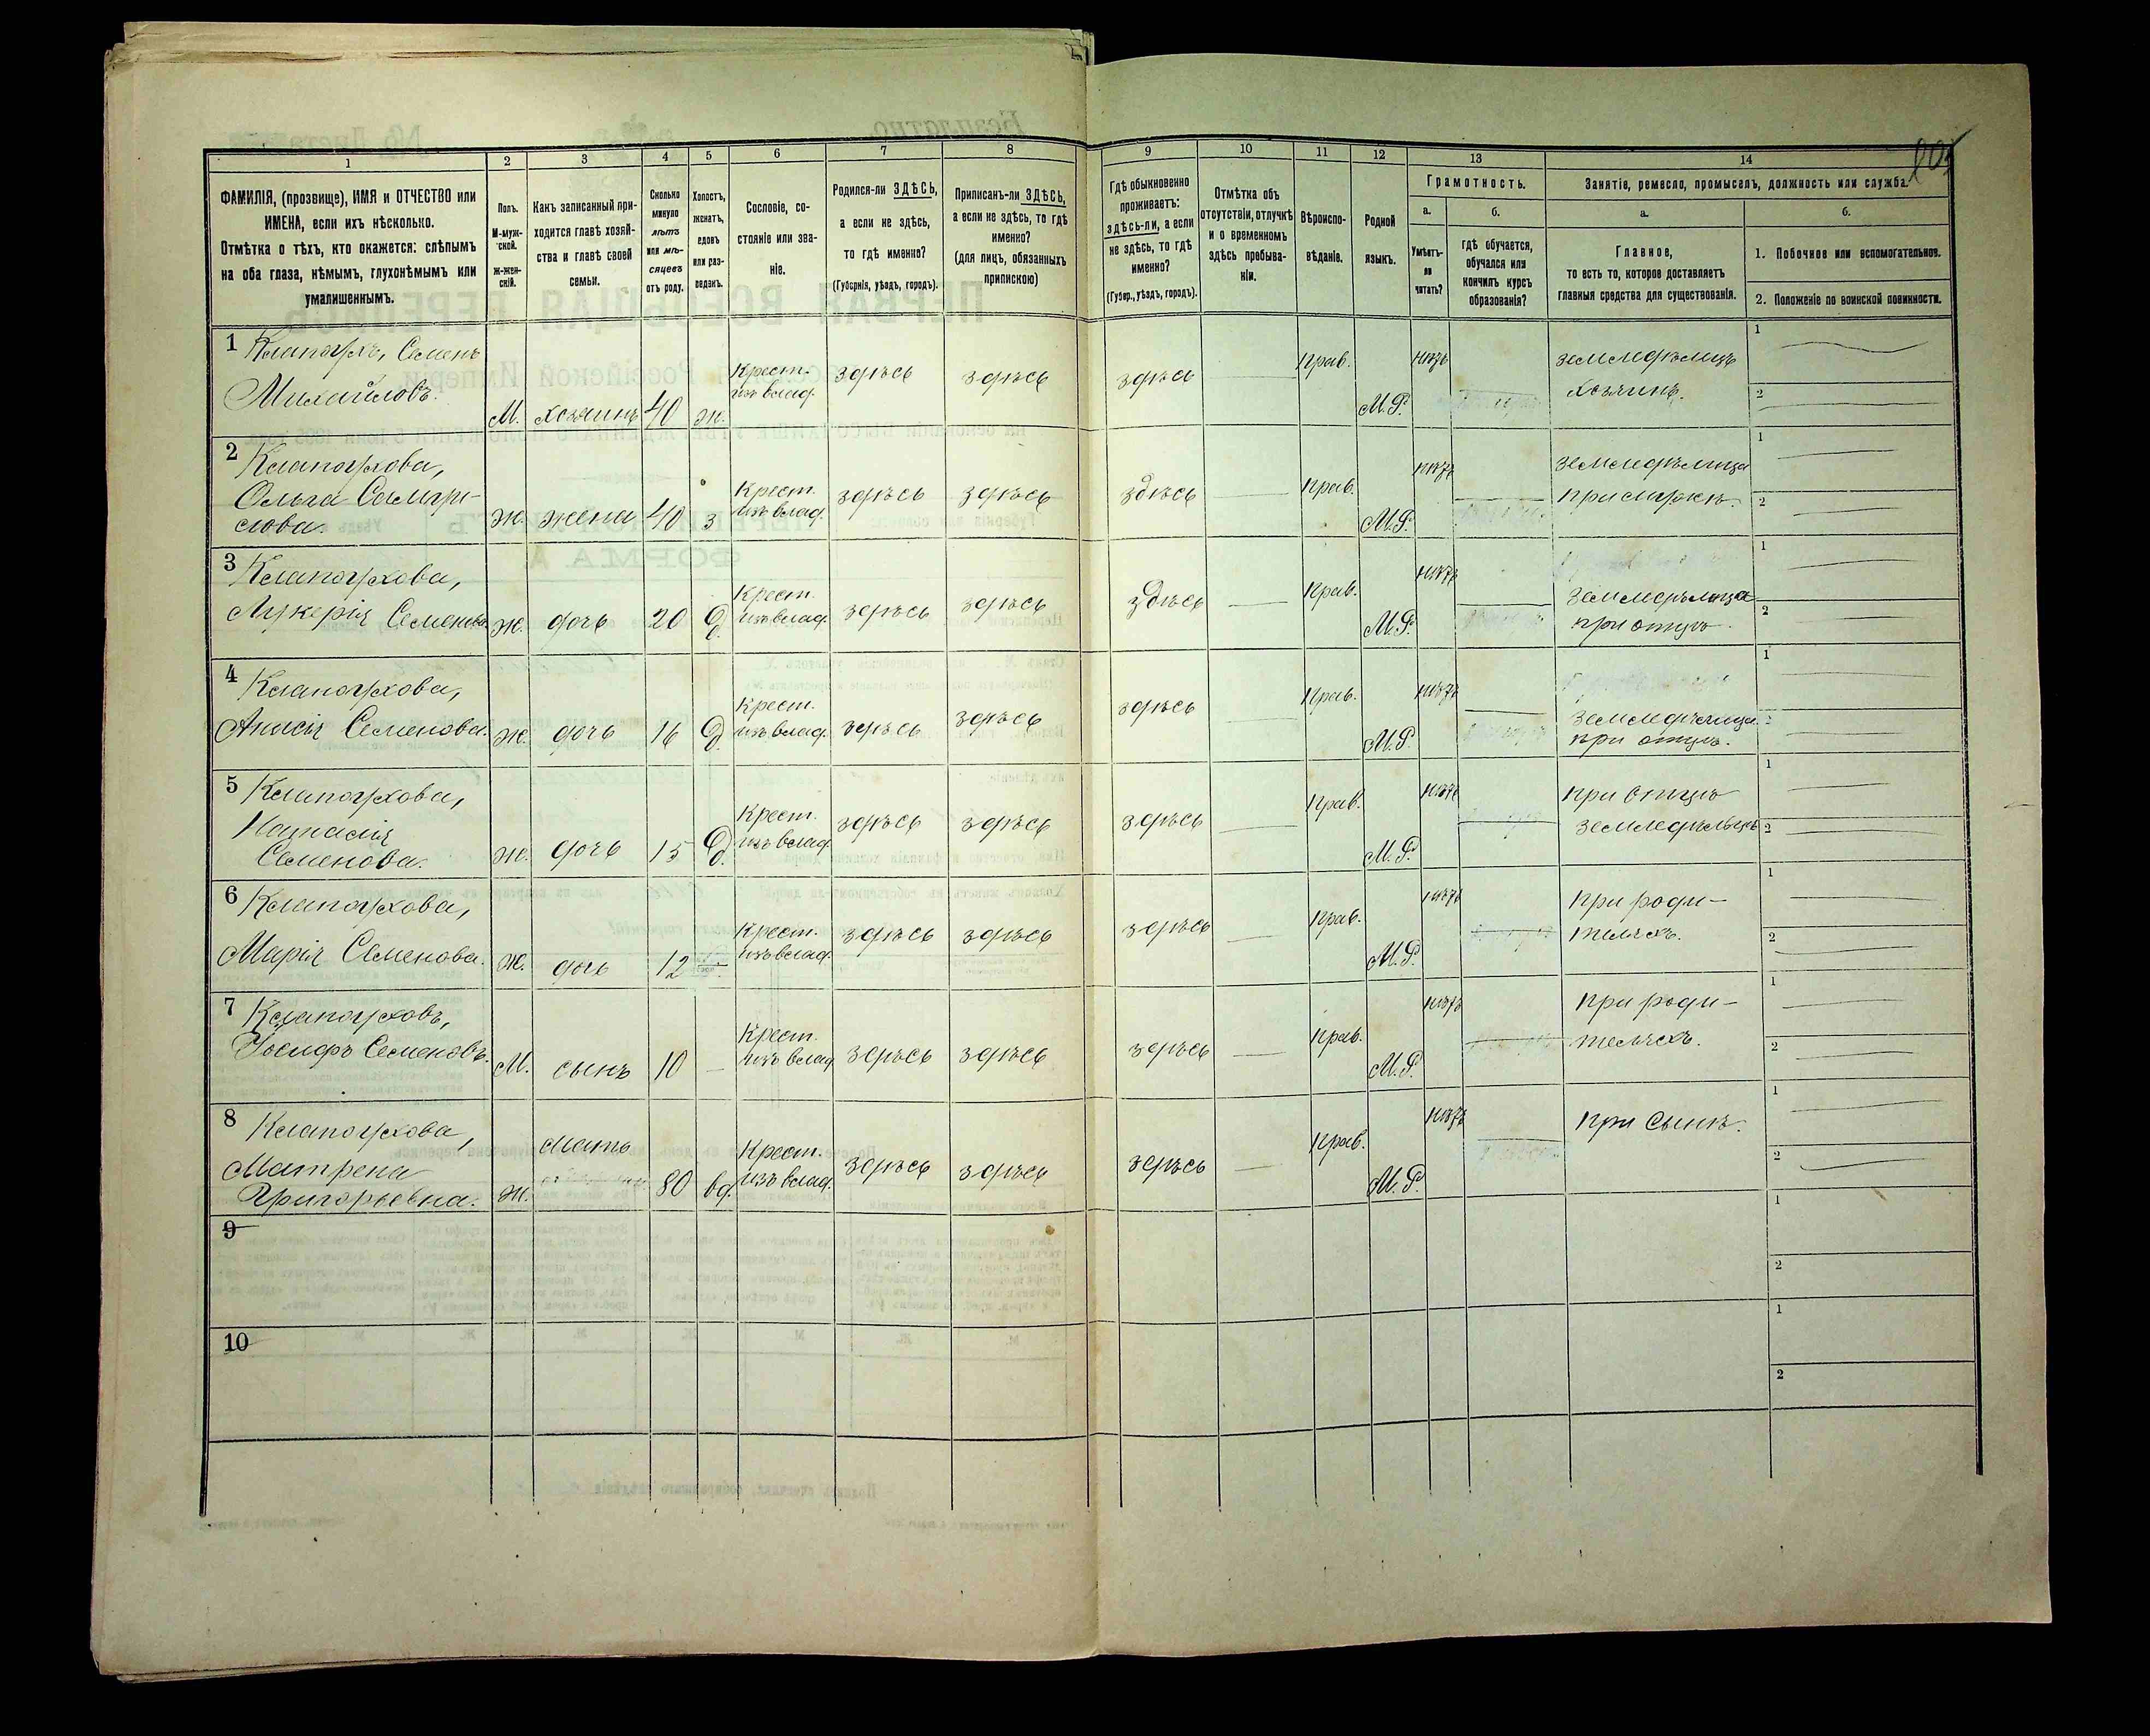 1 2 3 4 5 6 7 8 9 10 11 12 13 14
ФАМИЛІЯ, (прозвище), ИМЯ и ОТЧЕСТВО или
ИМЕНА, если ихъ нѣсколько.
Отмѣтка о тѣхъ, кто окажется: слѣпымъ
на оба глаза, нѣмымъ, глухонѣмымъ или
умалишеннымъ.
Полъ.
М-муж-
ской.
Ж-жен-
скій.
Какъ записанный при-
ходится главѣ хозяй-
ства и главѣ своей
семьи.
Сколько
минуло
лѣтъ
или мѣ-
сяцевъ
отъ роду.
Холостъ,
женатъ,
вдовъ
или раз-
веденъ.
Сословіе, со-
стояніе или зва-
ніе.
Родился-ли ЗДѢСЬ,
а если не здѣсь,
то гдѣ именно?
(Губернія, уѣздъ, городъ).
Приписанъ-ли ЗДѢСЬ,
а если не здѣсь, то гдѣ
именно?
(для лицъ, обязанныхъ
припискою)
Гдѣ обыкновенно
проживаетъ:
здѣсь-ли, а если
не здѣсь, то гдѣ
именно?
(Губер., уѣздъ, городъ).
Отмѣтка объ
отсутствіи, отлучкѣ
и о временномъ
здѣсь пребыва-
ніи.
Вѣроиспо-
вѣданіе.
Родной
языкъ.
Грамотность.
а.
Умѣетъ-
ли
читать?
б.
гдѣ обучается,
обучался или
кончилъ курсъ
образованія?
Занятіе, ремесло, промыселъ, должность или служба.
а.
Главное,
то есть то, которое доставляетъ
главныя средства для существованія.
б.
1. Побочное или вспомогательное.
2. Положеніе по воинской повинности.
1 Клапоухъ, Семенъ
Михайловъ.
М. хозяинъ 40 ж.
Крест.
изъ влад.
здѣсь здѣсь здѣсь Прав. М.Р. нѣтъ
земледѣлецъ
хозяинъ.
1
2
2 Клапоухова,
Ольга
ж. жена 40 з
Крест.
изъ влад.
здѣсь здѣсь здѣсь Прав. М.Р. нѣтъ
земледѣлица
при мужѣ.
1
2
3 Клапоухова,
Лукерія Семенова
ж. дочь 20 д.
Крест.
изъ влад.
здѣсь здѣсь здѣсь Прав. М.Р. нѣтъ
земледѣлица
при отцѣ.
1
2
4 Клапоухова,
Семенова.
ж. дочь 16 д.
Крест.
изъ влад.
здѣсь здѣсь здѣсь Прав. М.Р. нѣтъ
земледѣлица
при отцѣ.
1
2
5 Клапоухова,
Семенова.
ж. дочь 15 д.
Крест.
изъ влад.
здѣсь здѣсь здѣсь Прав. М.Р. нѣтъ
при отцѣ
1
2
6 Клапоухова,
Марія Семенова.
ж. дочь 12
Крест.
изъ влад.
здѣсь здѣсь здѣсь Прав. М.Р. нѣтъ
при роди-
теляхъ.
1
2
7 Клапоуховъ,
Іосифъ Семеновъ.
М. сынъ 10 –
Крест.
изъ влад.
здѣсь здѣсь здѣсь Прав. М.Р. нѣтъ
при роди-
теляхъ.
1
2
8 Клапоухова,
Матрена
Григорьевна.
ж. мать 80 вд.
Крест.
изъ влад.
здѣсь здѣсь здѣсь Прав. М.Р. нѣтъ
при сынѣ.
1
2
9
1
2
10
1
2